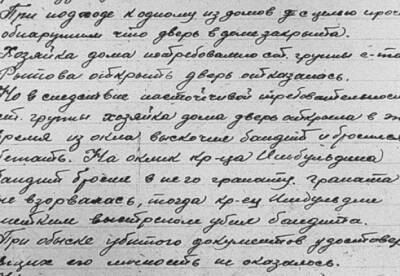 При подходе к одному из домов с целью проч
обнаружили что дверь в доме закрыта.
Хозяйка дома потребованию ст. группы с-та
Рытова открыть дверь отказалась.
Но в следствие настойчивой требовательнос
ст. группы хозяйка дома дверь открыла в э
время из окна выскочил бандит и бросился
бежать. На оклик кр-ца Имбульдина
бандит бросил в него гранату. граната
не взорвалась, тогда кр-ец Имбульдин
метким выстрелом убил бандита.
При обыске убитого документов удостовер
ющие его личность не оказалось.